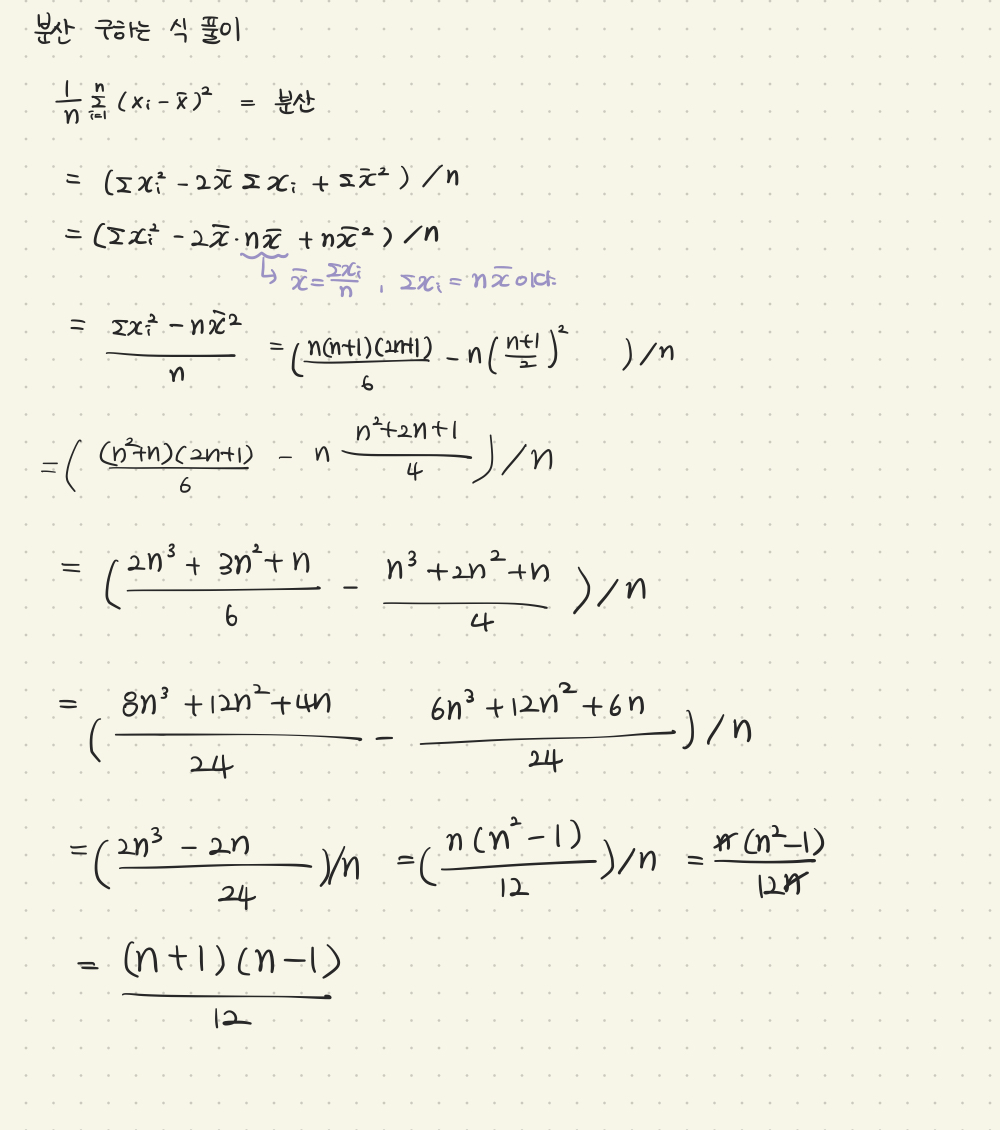 분산 구하는 식 풀이
1/n Σ_{i=1}^{n} (xᵢ - x̄)² = 분산
= (Σxᵢ² - 2x̄ Σxᵢ + Σx̄²) / n
= (Σxᵢ² - 2x̄·nx̄ + nx̄²) / n
↳ x̄ = Σxᵢ/n , Σxᵢ = nx̄이다.
= (Σxᵢ² - nx̄²)/n = (n(n+1)(2n+1)/6 - n((n+1)/2)²) / n
= ((n²+n)(2n+1)/6 - n (n²+2n+1)/4) / n
= ((2n³ + 3n² + n)/6 - (n³ + 2n² + n)/4) / n
= ((8n³ + 12n² + 4n)/24 - (6n³ + 12n² + 6n)/24) / n
= ((2n³ - 2n)/24) / n = (n(n² - 1)/12) / n = n(n²-1)/12n
= (n+1)(n-1)/12